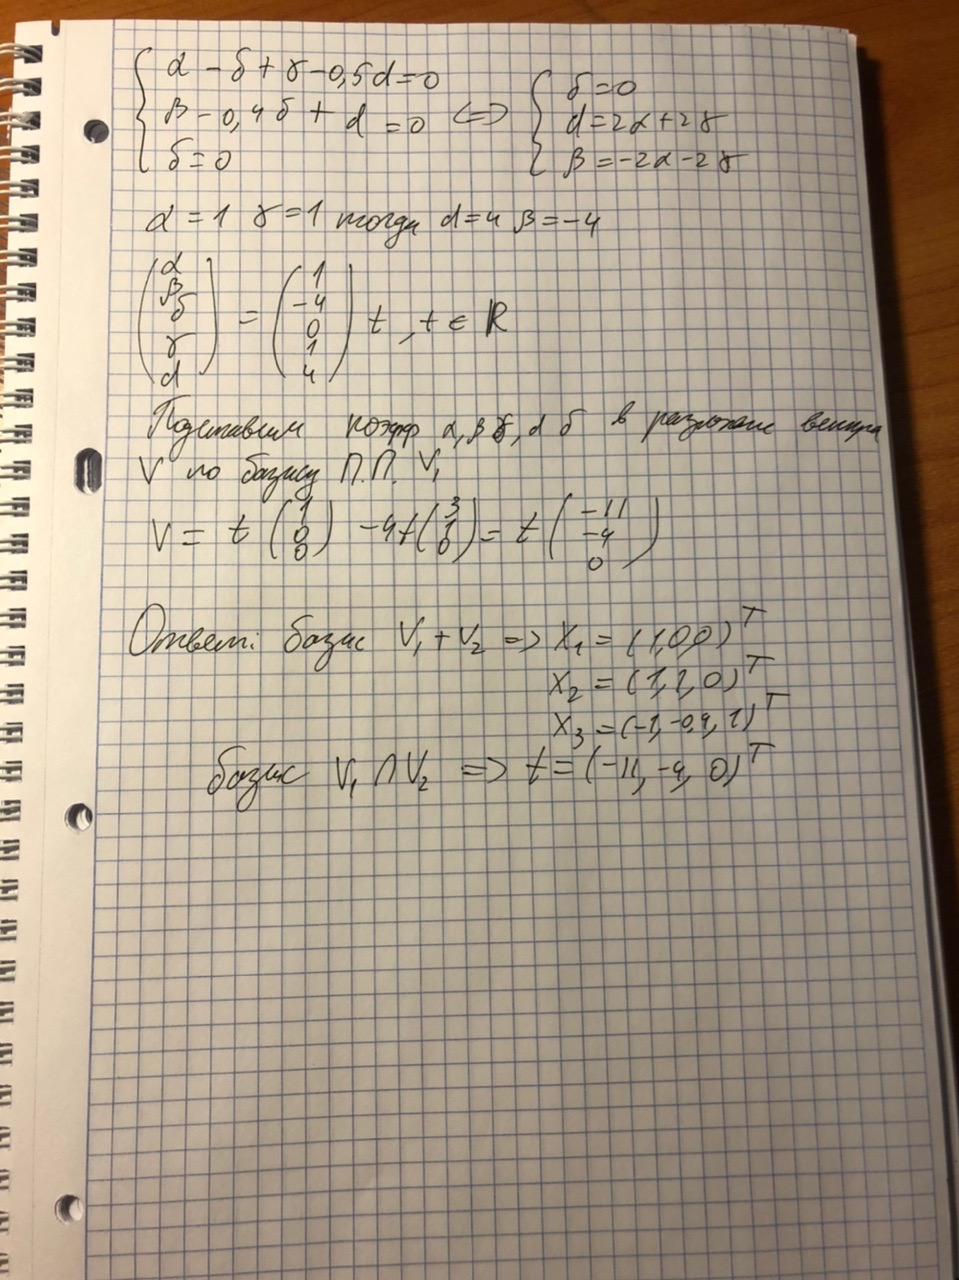 α - δ + γ - 0,5d = 0
β - 0,4δ + d = 0 <=> δ = 0
δ = 0
d = 2α + 2γ
β = -2α - 2γ
α = 1 γ = 1 тогда d = 4 β = -4
(α β δ γ d) = (1 -4 0 1 4) t, t ∈ R
Подставим коэфф α, β, γ, d δ в вектора
V по базису П.П. V₁
V = t (1 0 0) - 4t (3 1 0) = t (-11 -4 0)
Ответ: базис V₁ + V₂ => X₁ = (1,0,0)ᵀ
X₂ = (1, 1, 0)ᵀ
X₃ = (-1, -0,4, 1)ᵀ
базис V₁ ∩ V₂ => t = (-11, -4, 0)ᵀ